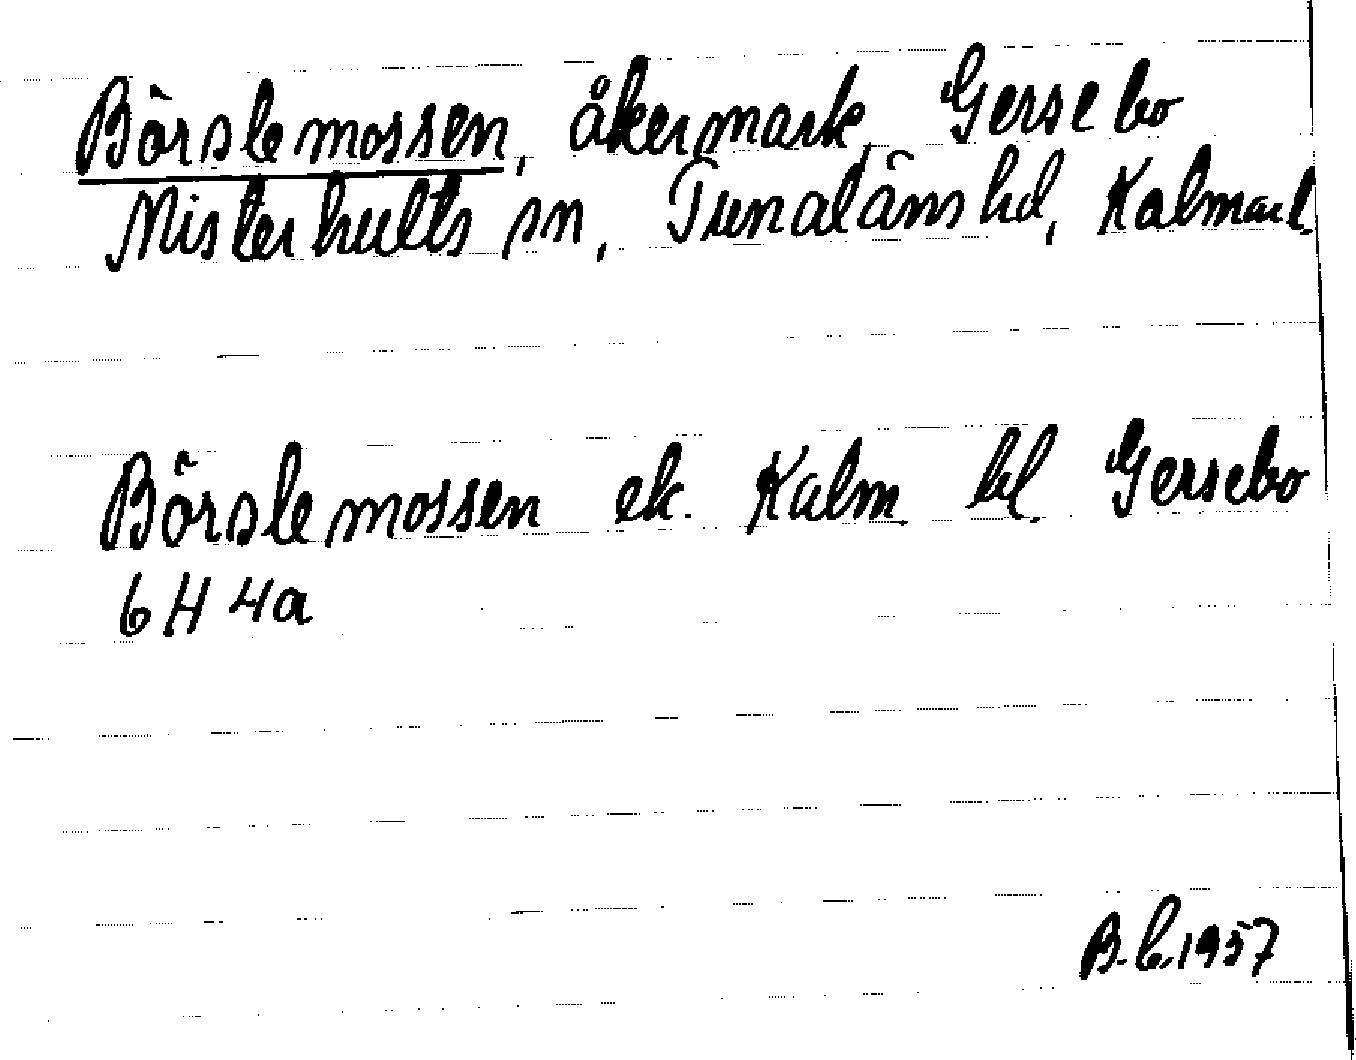 Börslemossen, åkermark, Gersebo
Misterhults sn, Tunaläns hd, Kalmar l.
Börslemossen ek. Kalm. bl. Gersebo
6H4a
B.L. 1957